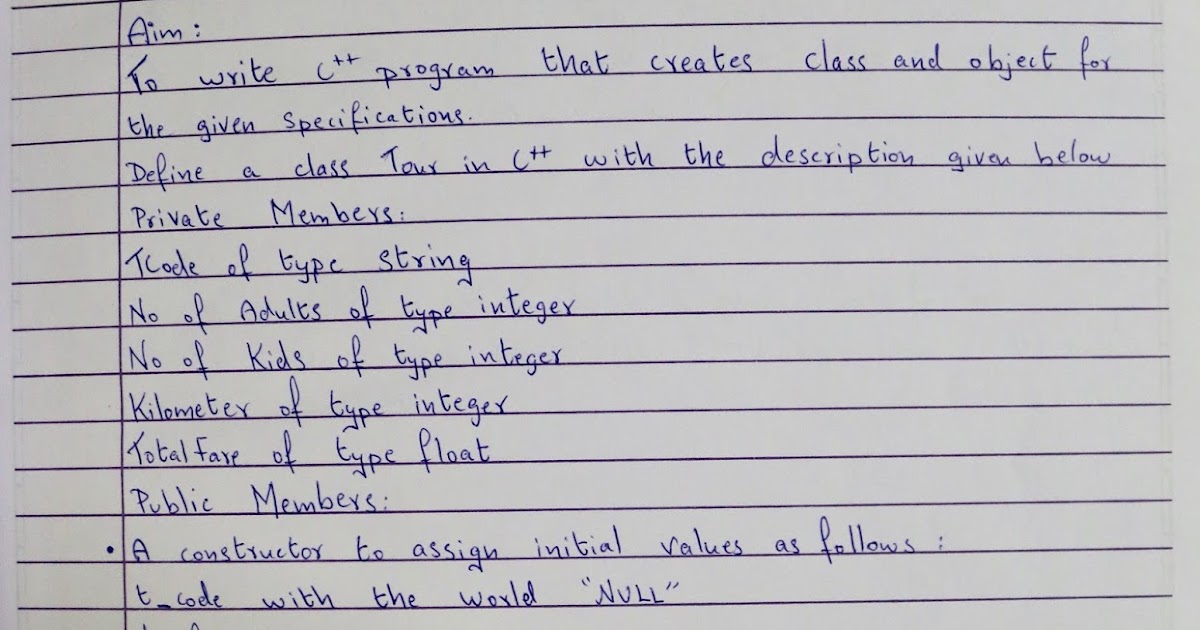 Aim:
To write C++ program that creates class and object for
the given Specifications.
Define a class Tour in C++ with the description given below
Private Members:
TCode of type string
No of Adults of type integer
No of Kids of type integer
Kilometer of type integer
Total Fare of type float
Public Members:
• A constructor to assign initial values as follows:
t_code with the world "NULL"